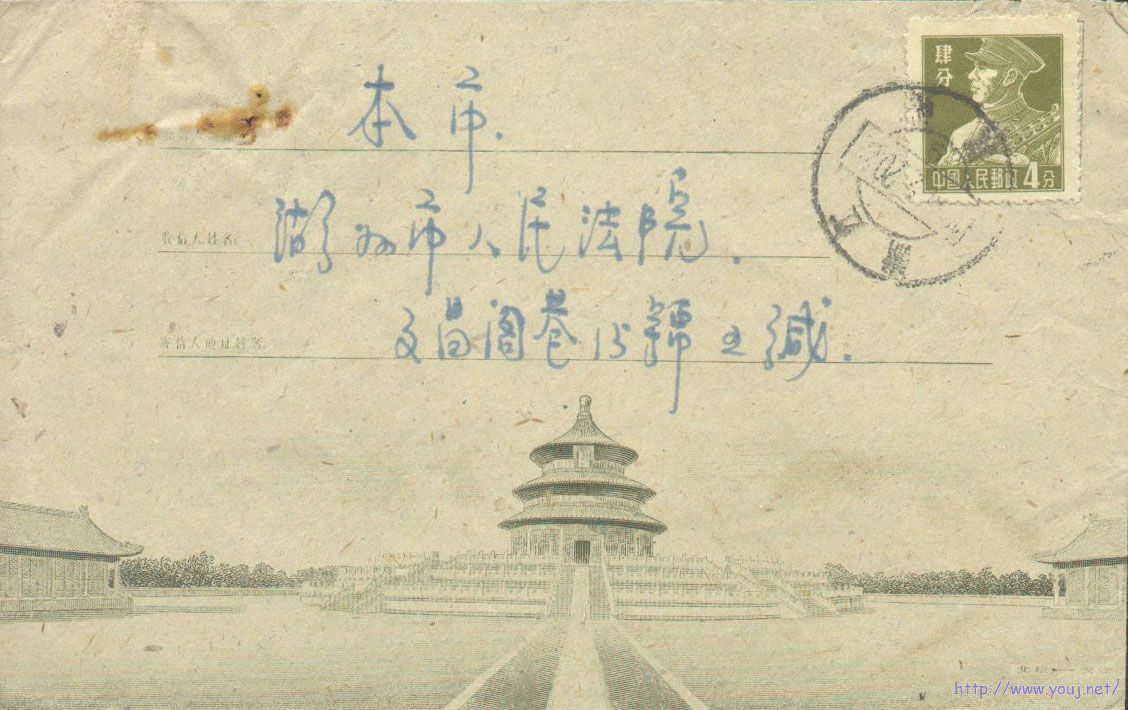 肆分
中國人民郵政4分
收信人地址:
本市.
收信人姓名:
湖州市人民法院.
寄信人地址姓名:
文昌阁巷15號王缄.
http://www.youj.net/